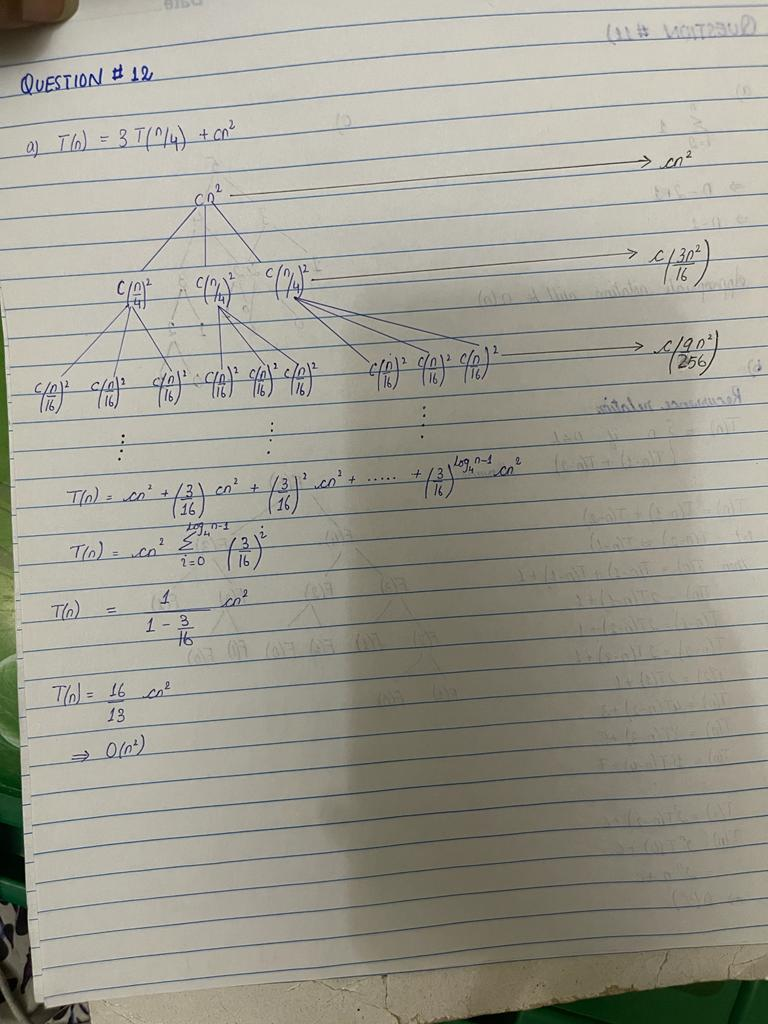 QUESTION # 12
a) T(n) = 3 T(n/4) + cn²
cn² → cn²
c(n/4)² c(n/4)² c(n/4)² → c(3n²/16)
c(n/16)² c(n/16)² c(n/16)² c(n/16)² c(n/16)² c(n/16)² c(n/16)² c(n/16)² c(n/16)² → c(9n²/256)
⋮ ⋮ ⋮
T(n) = cn² + (3/16) cn² + (3/16)² cn² + ..... + (3/16)^(log₄n-1) cn²
T(n) = cn² Σ_(i=0)^(log₄n-1) (3/16)^i
T(n) = 1/(1 - 3/16) cn²
T(n) = 16/13 cn²
⇒ O(n²)